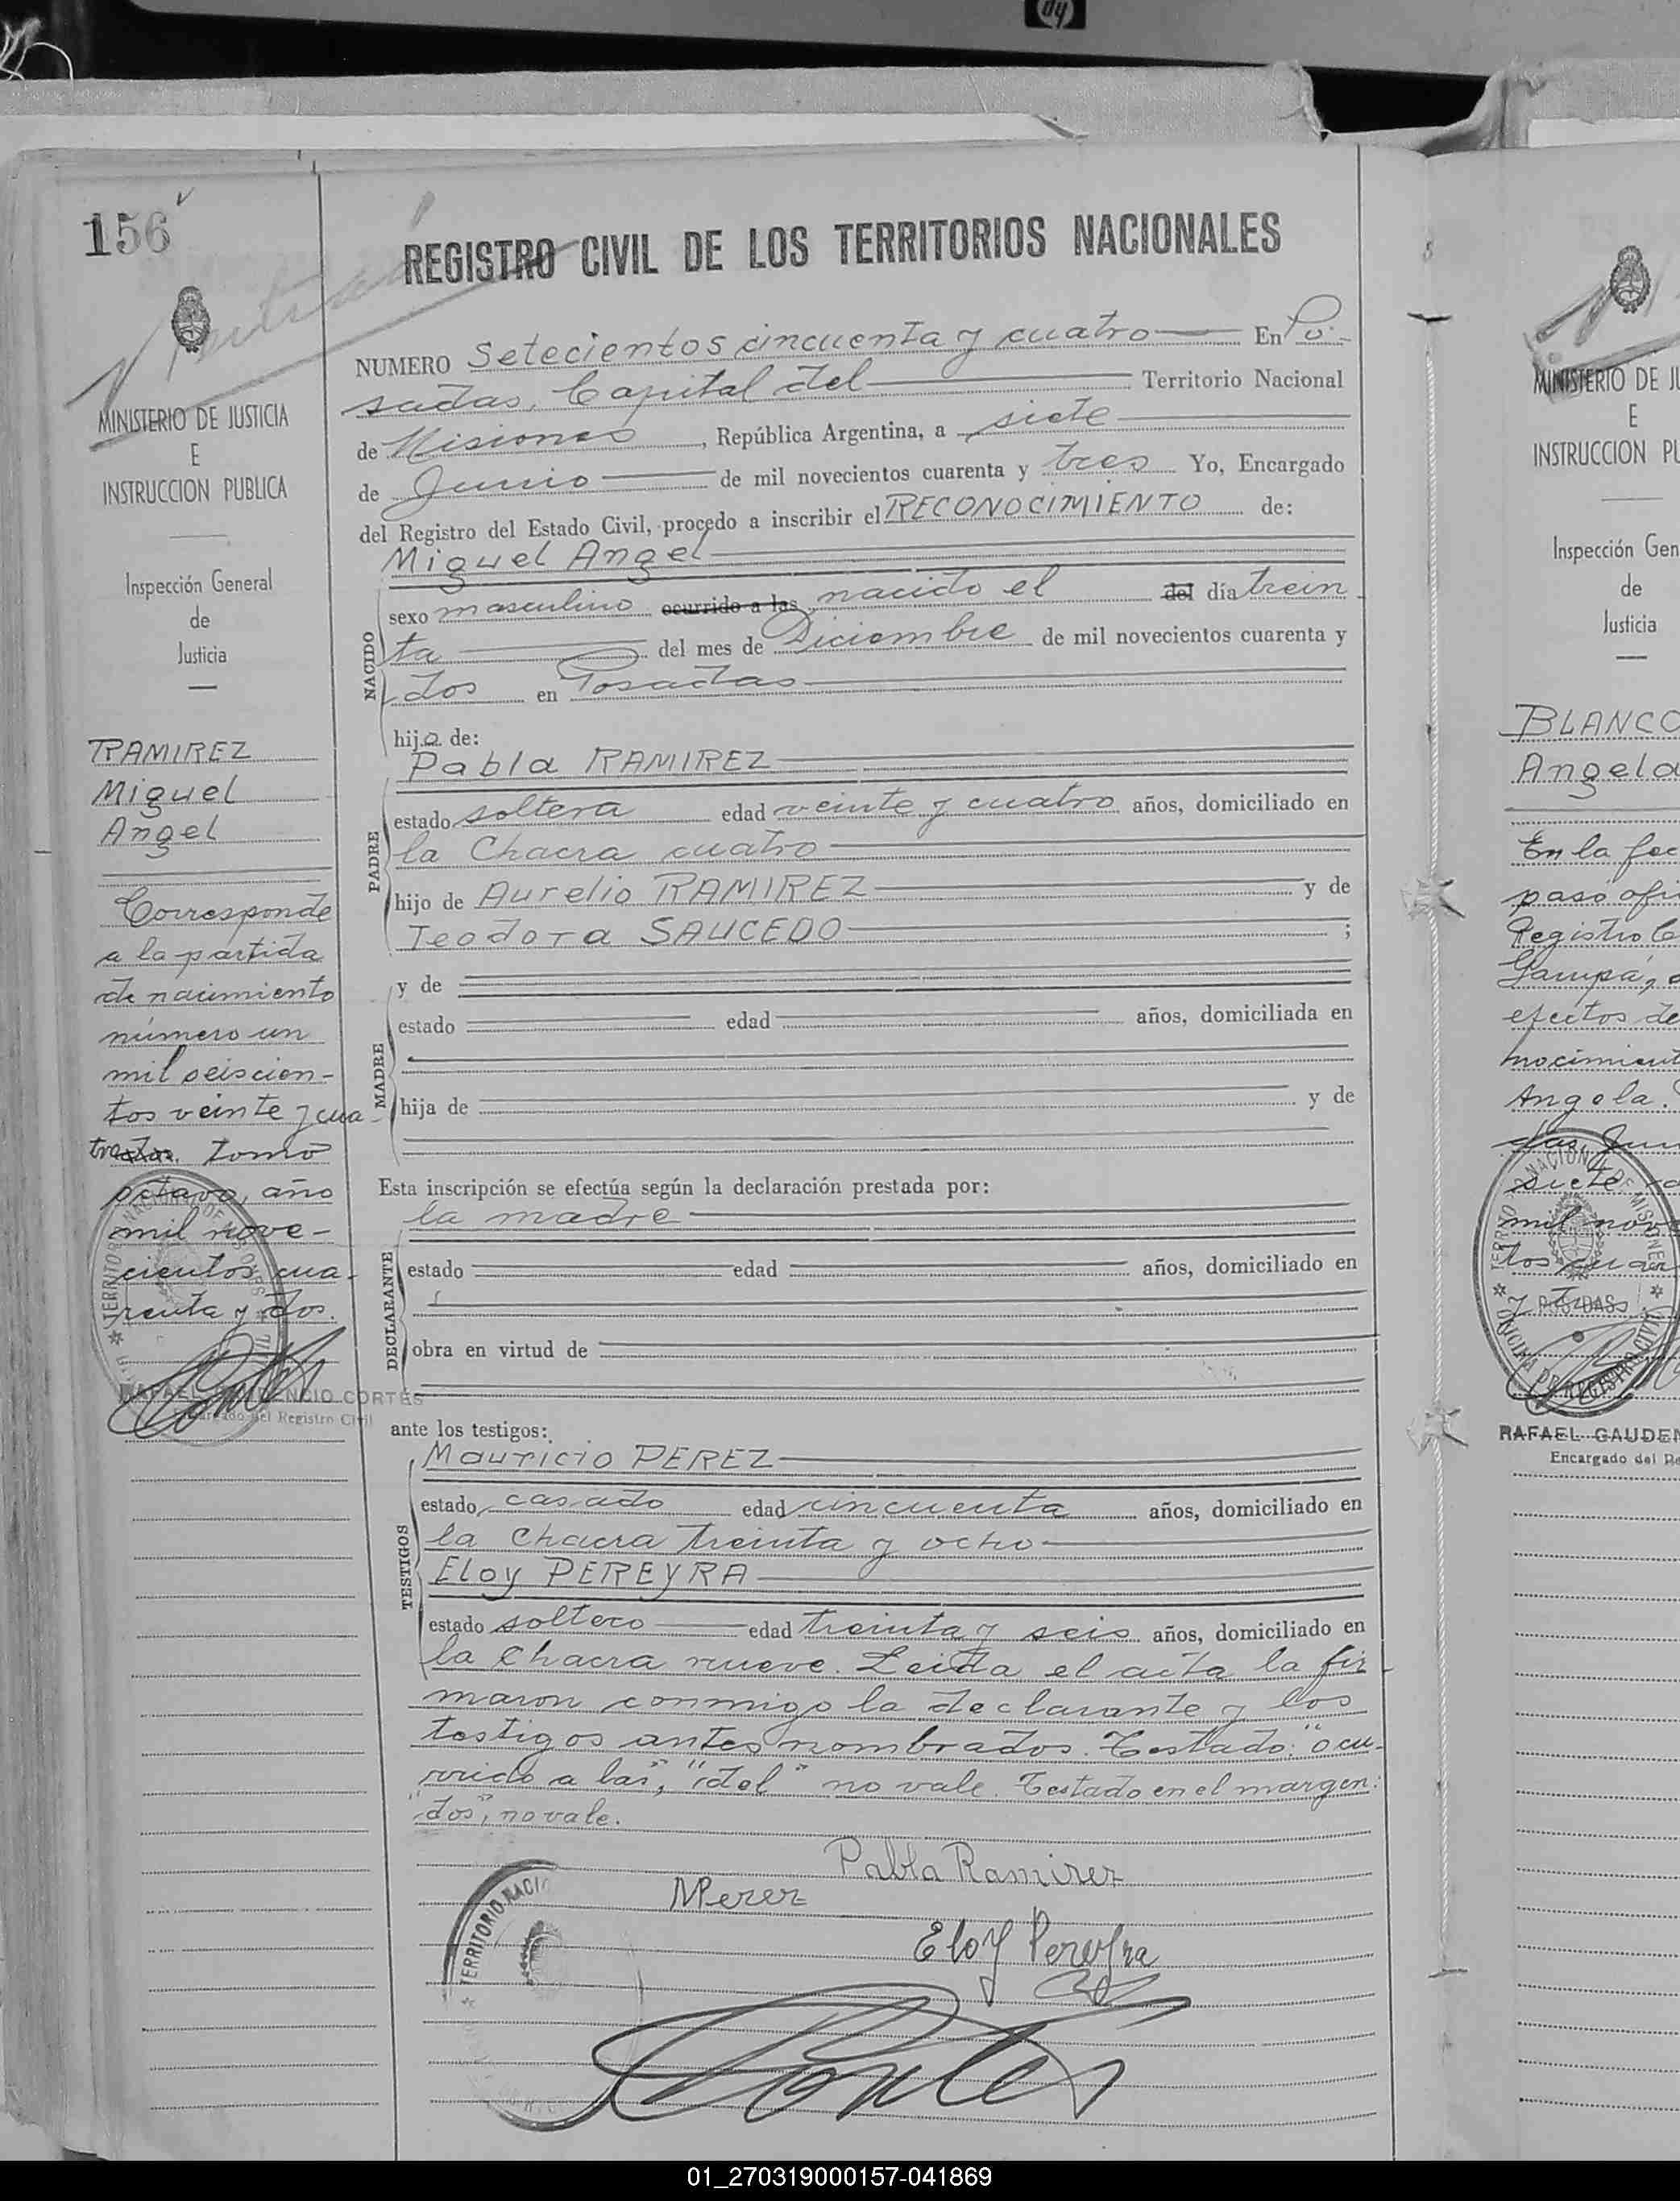 hp
156
REGISTRO CIVIL DE LOS TERRITORIOS NACIONALES
MINISTERIO DE JUSTICIA
E
INSTRUCCION PUBLICA
Inspección General
de
Justicia
RAMIREZ
Miguel
Angel
Corresponde
a la partida
de nacimiento
número un
mil seiscien-
tos veinte y cua-
tro dos. tomo
octavo, año
mil nove-
cientos cua-
renta y dos.
RAFAEL GAUDENCIO CORTES
Encargado del Registro Civil
NUMERO Setecientos cincuenta y cuatro En Po-
sadas, Capital del Territorio Nacional
de Misiones, República Argentina, a siete
de Junio de mil novecientos cuarenta y tres Yo, Encargado
del Registro del Estado Civil, procedo a inscribir el RECONOCIMIENTO de:
Miguel Angel
NACIDO
sexo masculino ocurrido a las nacido el del día trein-
ta del mes de Diciembre de mil novecientos cuarenta y
dos en Posadas
hijo de:
Pabla RAMIREZ
PADRE
estado soltera edad veinte y cuatro años, domiciliado en
la Chacra cuatro
hijo de Aurelio RAMIREZ y de
Teodora SAUCEDO ;
y de
MADRE
estado edad años, domiciliada en
hija de y de
Esta inscripción se efectúa según la declaración prestada por:
la madre
DECLARANTE
estado edad años, domiciliado en
obra en virtud de
ante los testigos:
Mauricio PEREZ
TESTIGOS
estado casado edad cincuenta años, domiciliado en
la Chacra treinta y ocho
Eloy PEREYRA
estado soltero edad treinta y seis años, domiciliado en
la Chacra nueve. Leida el acta la fir-
maron conmigo la declarante y los
testigos antes nombrados. Testado: "ocu-
rrido a las", "del" no vale. Testado en el margen:
"dos", no vale.
Pabla Ramirez
MPerez
Eloy Pereyra
Cortes
TERRITORIO NACI
MINISTERIO DE JU
E
INSTRUCCION PU
Inspección Gen
de
Justicia
BLANCO
Angela
En la fec
pasó ofi
Registro C
efectos de
nocimient
Angela.
siete
mil nov
tos cuar
TERRITORIO NACIONAL DE MISIONES
POSADAS
OFICINA DE REGISTRO CIVIL
RAFAEL GAUDEN
Encargado del Re
01_270319000157-041869